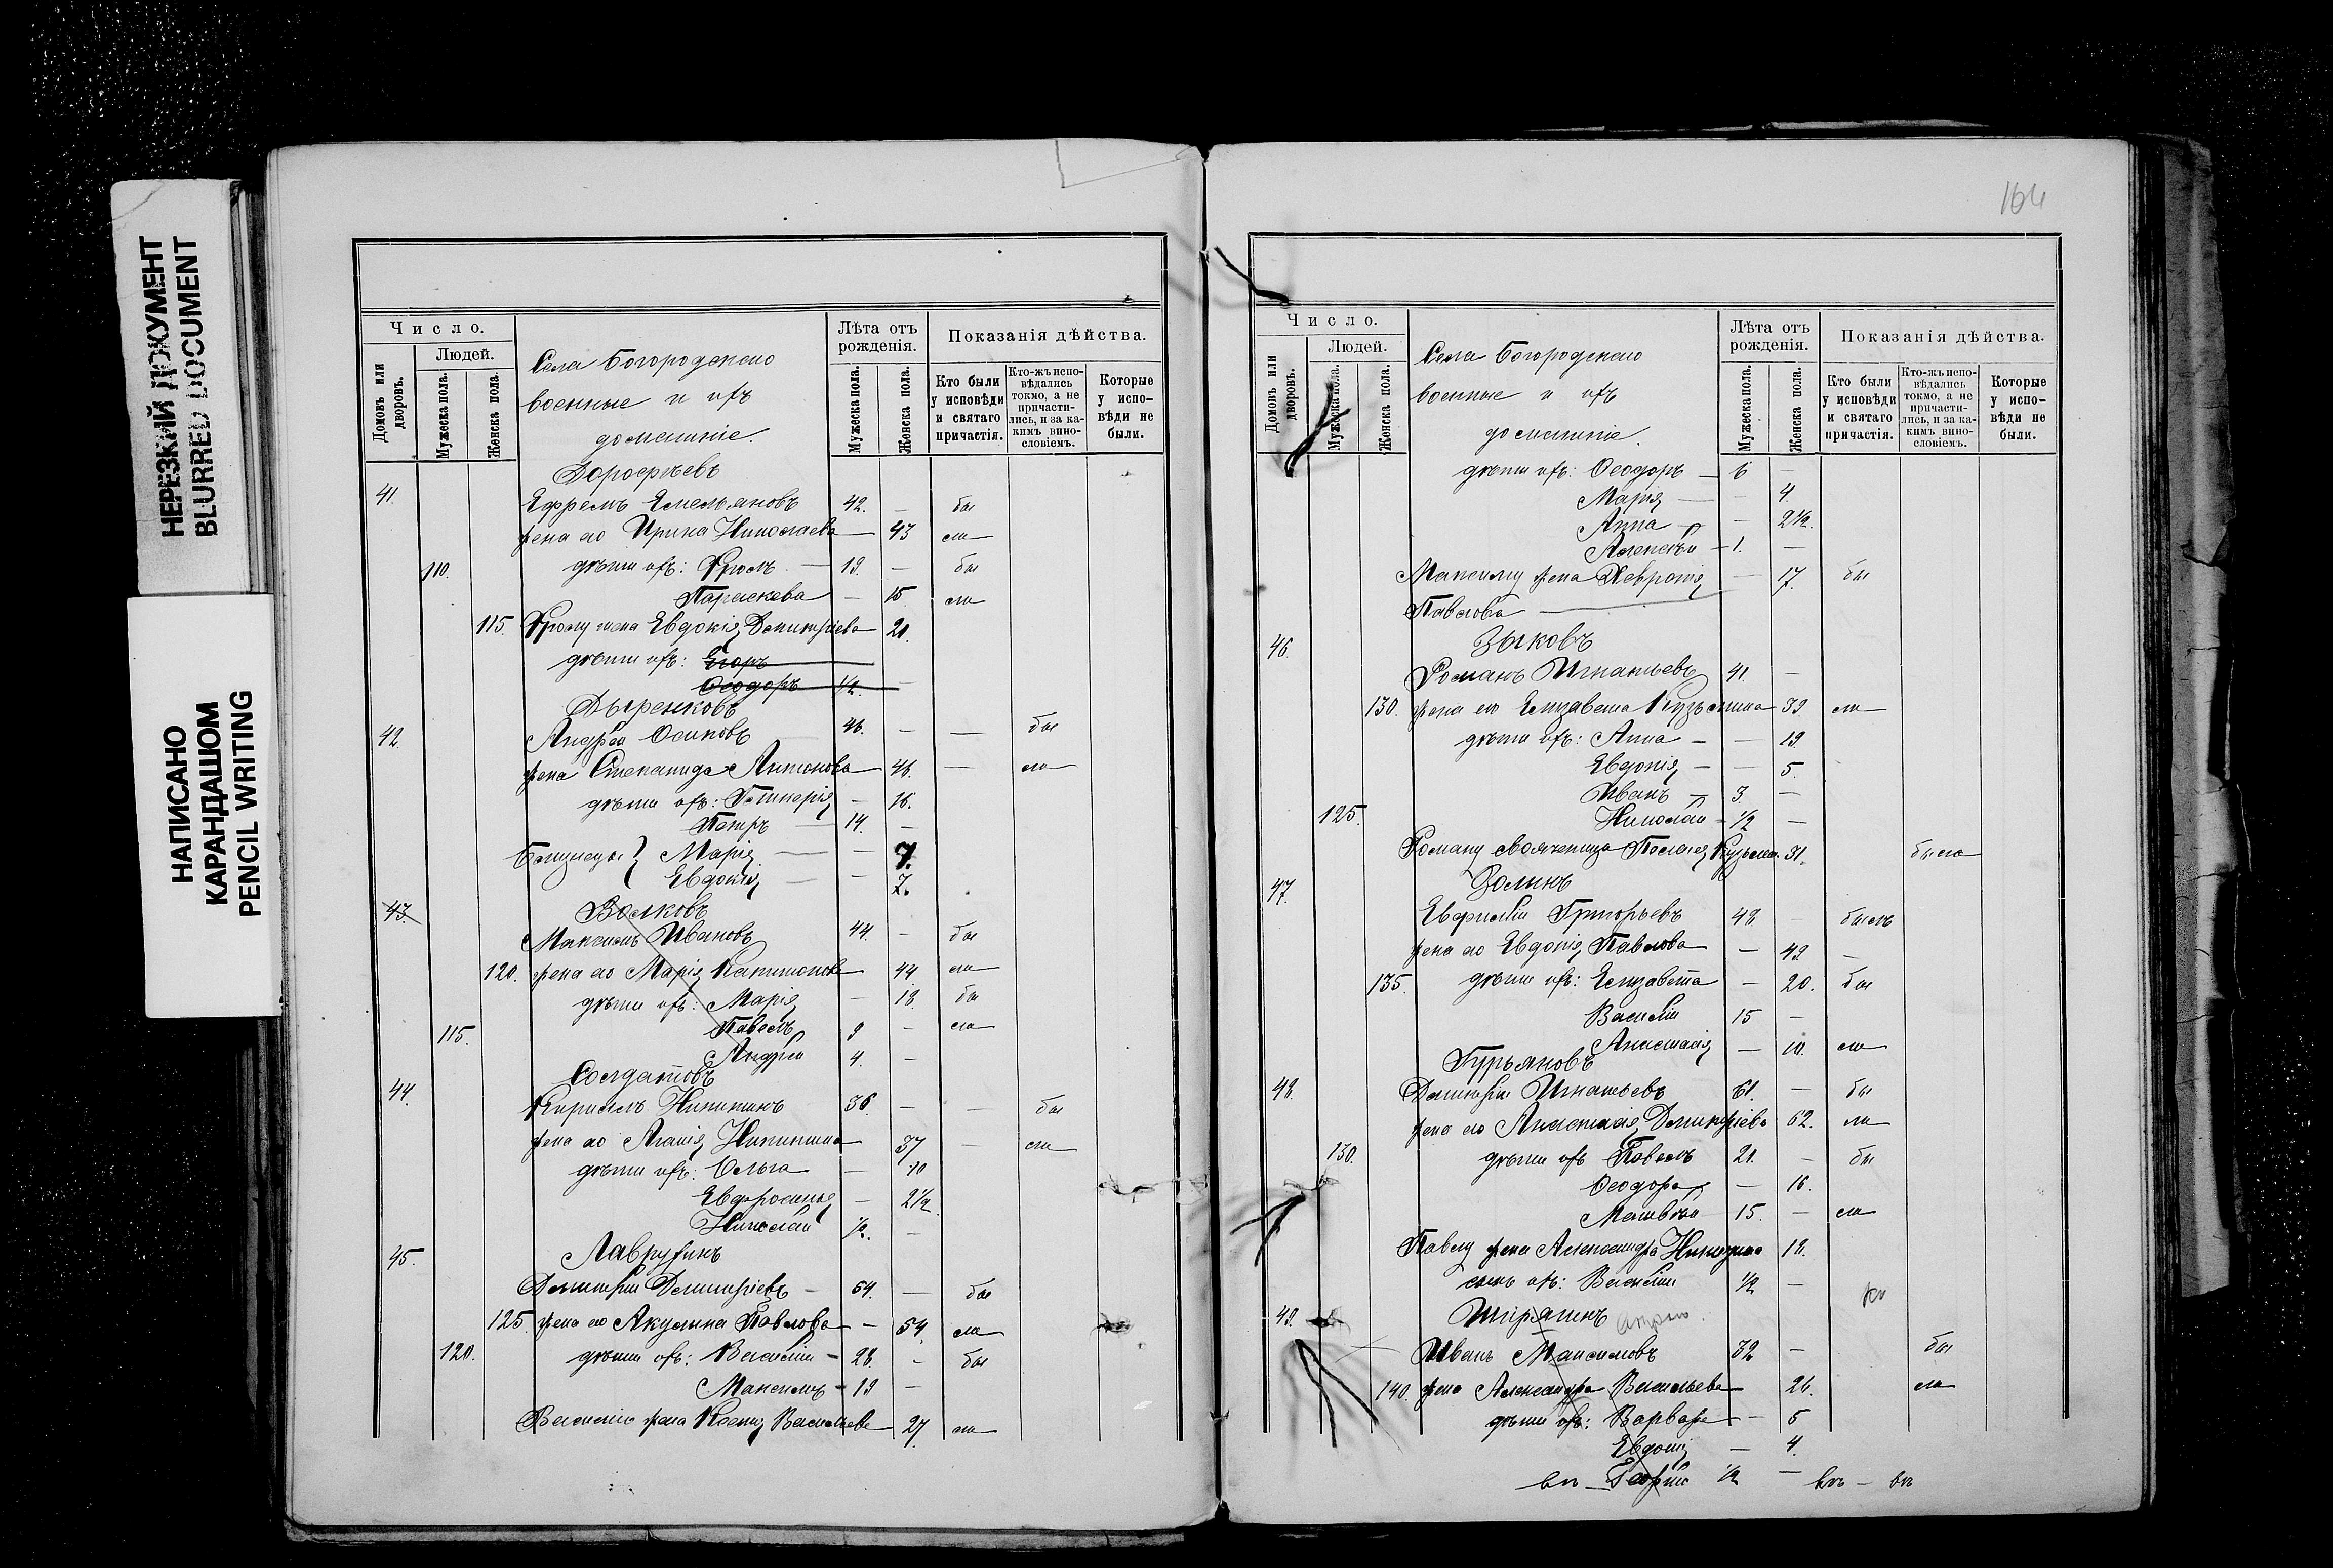 НЕРЕЗКИЙ ДОКУМЕНТ
BLURRED DOCUMENT
НАПИСАНО
КАРАНДАШОМ
PENCIL WRITING
Число.
Людей.
Домовъ или дворовъ.
Мужеска пола.
Женска пола.
Села Богородскаго
военные и ихъ
домашніе.
Лѣта отъ рожденія.
Мужеска пола.
Женска пола.
Показанія дѣйства.
Кто были у исповѣди и святаго причастія.
Кто-жъ исповѣдались токмо, а не причастились, и за какимъ винословіемъ.
Которые у исповѣди не были.
Дорофѣевъ
41. Ефремъ Емельяновъ 42. — бы
жена его Ирина Николаева — 43 ли
110. дѣти ихъ: Фролъ — 19. — бы
Параскева — 15 ли
115. Фролу жена Евдокія Димитріева 21.
дѣти ихъ: Егоръ
Ѳеодоръ 1/2. —
Дыренковъ
42. Андрей Осиповъ 46. — — бы
жена Степанида Антонова 46. — ли
дѣти ихъ: Гликерія — 16.
Петръ — 14. —
Близнецы } Марія — — 7.
Евдокія — — 7.
43. Волковъ
Максимъ Ивановъ 44. — бы
120. жена его Марія Капитонова 44 ли
дѣти ихъ: Марія — 18. бы
115. Павелъ 9 — ли
Андрей 4. —
Солдатовъ
44. Кириллъ Никитинъ 36. — — бы
жена его Агаѳія Никитина 37 — ли
дѣти ихъ: Ольга — 10
Евфросинія — 2 1/2
Николай 1/2. —
45. Лаврухинъ
Димитрій Димитріевъ — 64. — бы
125. жена его Акулина Павлова — 54. ли
120. дѣти ихъ: Василій — 28. — бы
Максимъ — 19 —
Василію жена Ксенія Васильева 27 ли
164
Число.
Людей.
Домовъ или дворовъ.
Мужеска пола.
Женска пола.
Села Богородскаго
военные и ихъ
домашніе.
Лѣта отъ рожденія.
Мужеска пола.
Женска пола.
Показанія дѣйства.
Кто были у исповѣди и святаго причастія.
Кто-жъ исповѣдались токмо, а не причастились, и за какимъ винословіемъ.
Которые у исповѣди не были.
дѣти ихъ: Ѳеодоръ — 6 —
Марія — — 4.
Анна — — 2 1/2.
Алексѣй — 1. —
Максиму жена Хевронія — 17. бы
Павлова —
46. Зыковъ
Романъ Игнатьевъ 41 —
130. жена его Елизавета Кузьмина 39. ли
дѣти ихъ: Анна — — 19.
Евдокія — — 5.
Иванъ — 3. —
125. Николай — 1/2 —
Роману своячиница Пелагея Кузьмина 31. была
47. Золинъ
Евфимій Григорьевъ 48. — былъ
жена его Евдокія Павлова — 49 —
135. дѣти ихъ: Елизавета — 20. бы
Василій 15 —
Анастасія — 10. ли
Гурьяновъ
48. Димитрій Игнатьевъ 61. — бы
жена его Анастасія Димитріева 62. ли
130. дѣти ихъ Павелъ 21. — бы
Ѳеодора — 16.
Матвѣй 15. — ли
Павлу жена Александра 18.
сынъ ихъ: Василій 1/2 —
49. Ширяинъ
Иванъ Максимовъ 32 — бы
140. жена Александра Васильева 26. ли
дѣти ихъ: Варвара — 5
Евдокія — 4.
Георгій 1/2 —